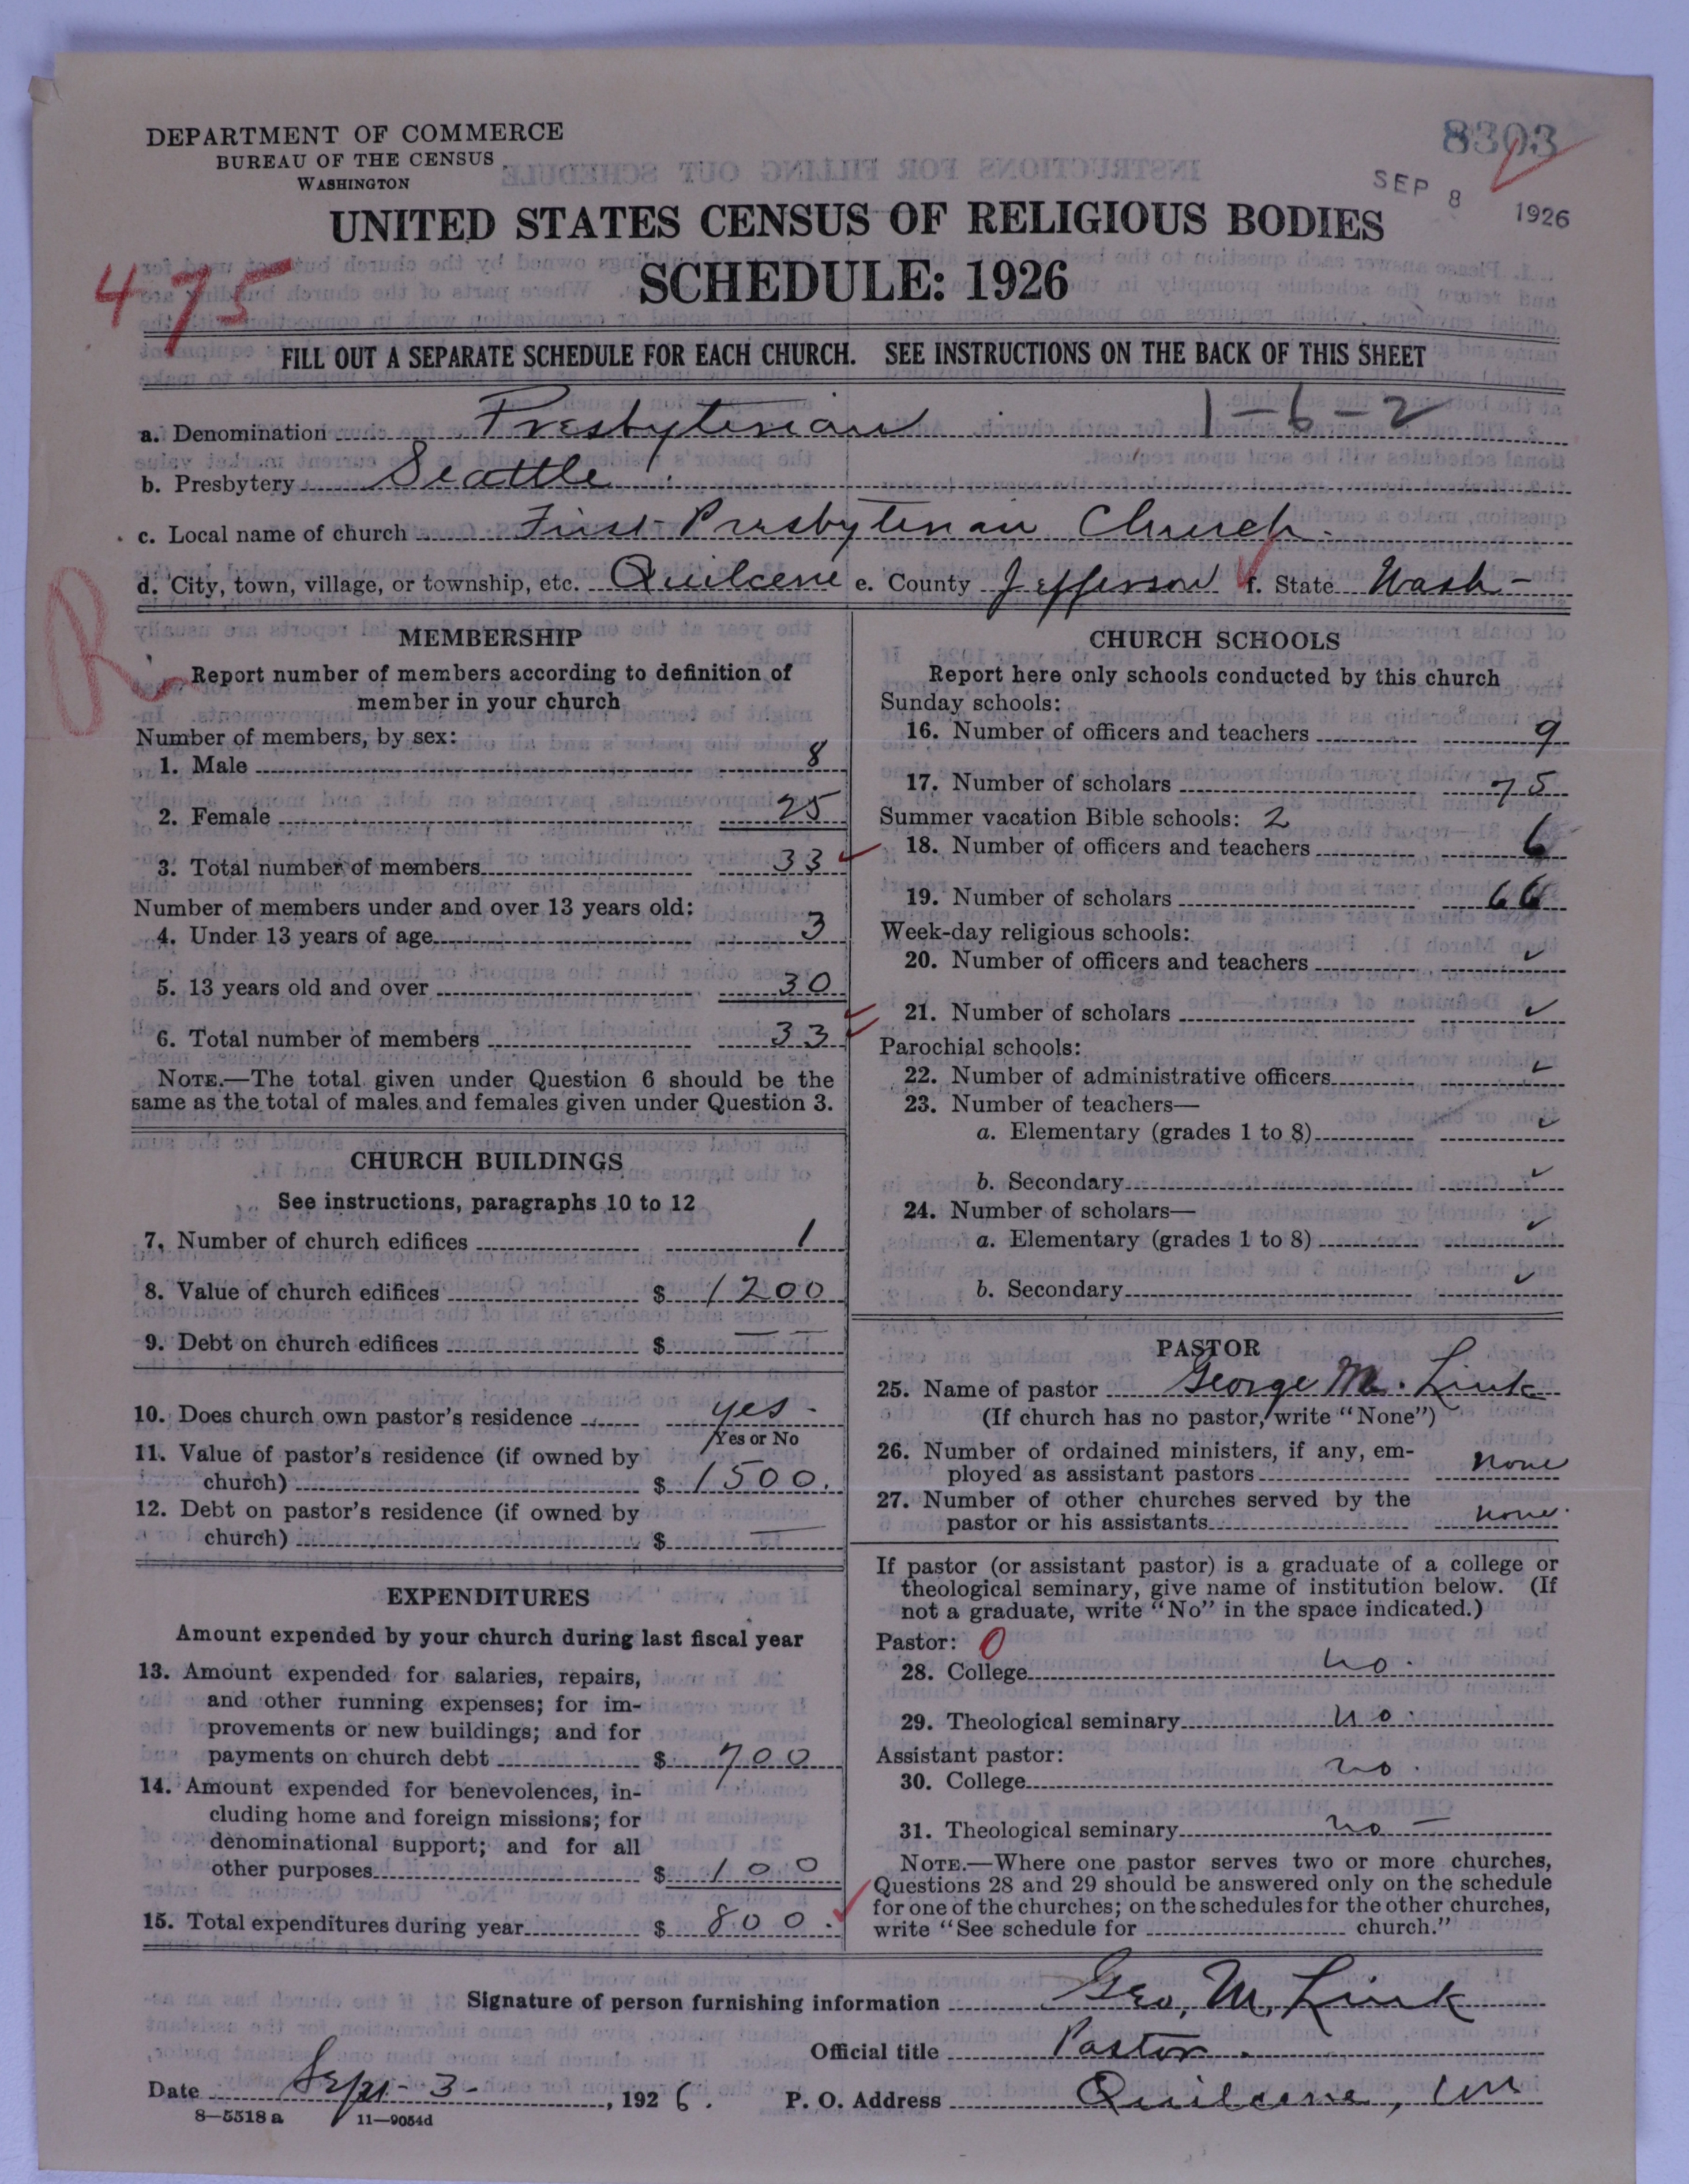 DEPARTMENT OF COMMERCE
BUREAU OF THE CENSUS
WASHINGTON
8303
SEP 8 1926
UNITED STATES CENSUS OF RELIGIOUS BODIES
SCHEDULE: 1926
475
FILL OUT A SEPARATE SCHEDULE FOR EACH CHURCH. SEE INSTRUCTIONS ON THE BACK OF THIS SHEET
a. Denomination Presbyterian 1-6-2
b. Presbytery Seattle
c. Local name of church First Presbyterian Church.
d. City, town, village, or township, etc. Quilcene e. County Jefferson f. State Wash-
R
MEMBERSHIP
Report number of members according to definition of
member in your church
Number of members, by sex:
1. Male 8
2. Female 25
3. Total number of members 33
Number of members under and over 13 years old:
4. Under 13 years of age 3
5. 13 years old and over 30
6. Total number of members 33
NOTE.—The total given under Question 6 should be the
same as the total of males and females given under Question 3.
CHURCH BUILDINGS
See instructions, paragraphs 10 to 12
7. Number of church edifices 1
8. Value of church edifices $ 1200
9. Debt on church edifices $ — —
10. Does church own pastor's residence yes -
Yes or No
11. Value of pastor's residence (if owned by
church) $ 1500.
12. Debt on pastor's residence (if owned by
church) $ —
EXPENDITURES
Amount expended by your church during last fiscal year
13. Amount expended for salaries, repairs,
and other running expenses; for im-
provements or new buildings; and for
payments on church debt $ 700
14. Amount expended for benevolences, in-
cluding home and foreign missions; for
denominational support; and for all
other purposes $ 100
15. Total expenditures during year $ 800.
CHURCH SCHOOLS
Report here only schools conducted by this church
Sunday schools:
16. Number of officers and teachers 9
17. Number of scholars 75
Summer vacation Bible schools: 2
18. Number of officers and teachers 6
19. Number of scholars 66
Week-day religious schools:
20. Number of officers and teachers ✓
21. Number of scholars ✓
Parochial schools:
22. Number of administrative officers ✓
23. Number of teachers—
a. Elementary (grades 1 to 8) ✓
b. Secondary ✓
24. Number of scholars—
a. Elementary (grades 1 to 8) ✓
b. Secondary ✓
PASTOR
25. Name of pastor George M. Link
(If church has no pastor, write "None")
26. Number of ordained ministers, if any, em-
ployed as assistant pastors none
27. Number of other churches served by the
pastor or his assistants none.
If pastor (or assistant pastor) is a graduate of a college or
theological seminary, give name of institution below. (If
not a graduate, write "No" in the space indicated.)
Pastor: 0
28. College no.
29. Theological seminary no.
Assistant pastor:
30. College no.
31. Theological seminary no —
NOTE.—Where one pastor serves two or more churches,
Questions 28 and 29 should be answered only on the schedule
for one of the churches; on the schedules for the other churches,
write "See schedule for church."
Signature of person furnishing information Geo, M, Link
Official title Pastor.
Date Sept- 3-, 1926. P. O. Address Quilcene, Wn
8—5518 a 11—9054d